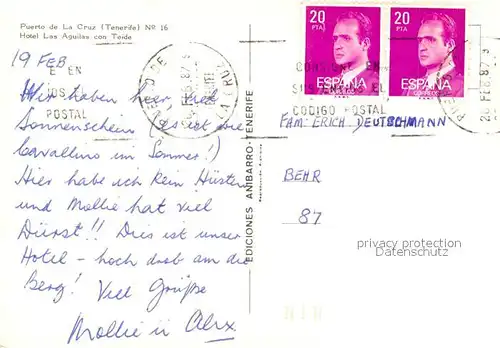 Puerto de La Cruz (Tenerife) Nº 16
Hotel Las Aguilas con Teide
19 FEB
Wir haben hier viel
Sonnenschein (es ist wie
Cavallino im Sommer!)
Hier habe ich kein Hüsten
und Mollie hat viel
Dürst!! Dies ist unser
Hotel - hoch drob am die
Berg! Viel Grüße
Mollie ü Alex
EDICIONES ANIBARRO-TENERIFE
20
PTA
ESPAÑA
CORREOS
20
PTA
ESPAÑA
CORREOS
E EN
POSTAL
CONSIGNE EN
SUS SEÑAS EL
CODIGO POSTAL
20 FEB 87
FAM. ERICH DEUTSCHMANN
BEHR
87
privacy protection
Datenschutz